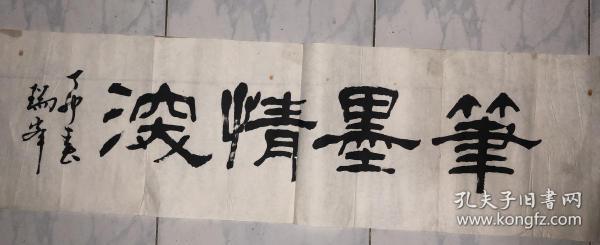 筆墨情深
丁卯春
瑞峰
孔夫子旧书网
www.kongfz.com